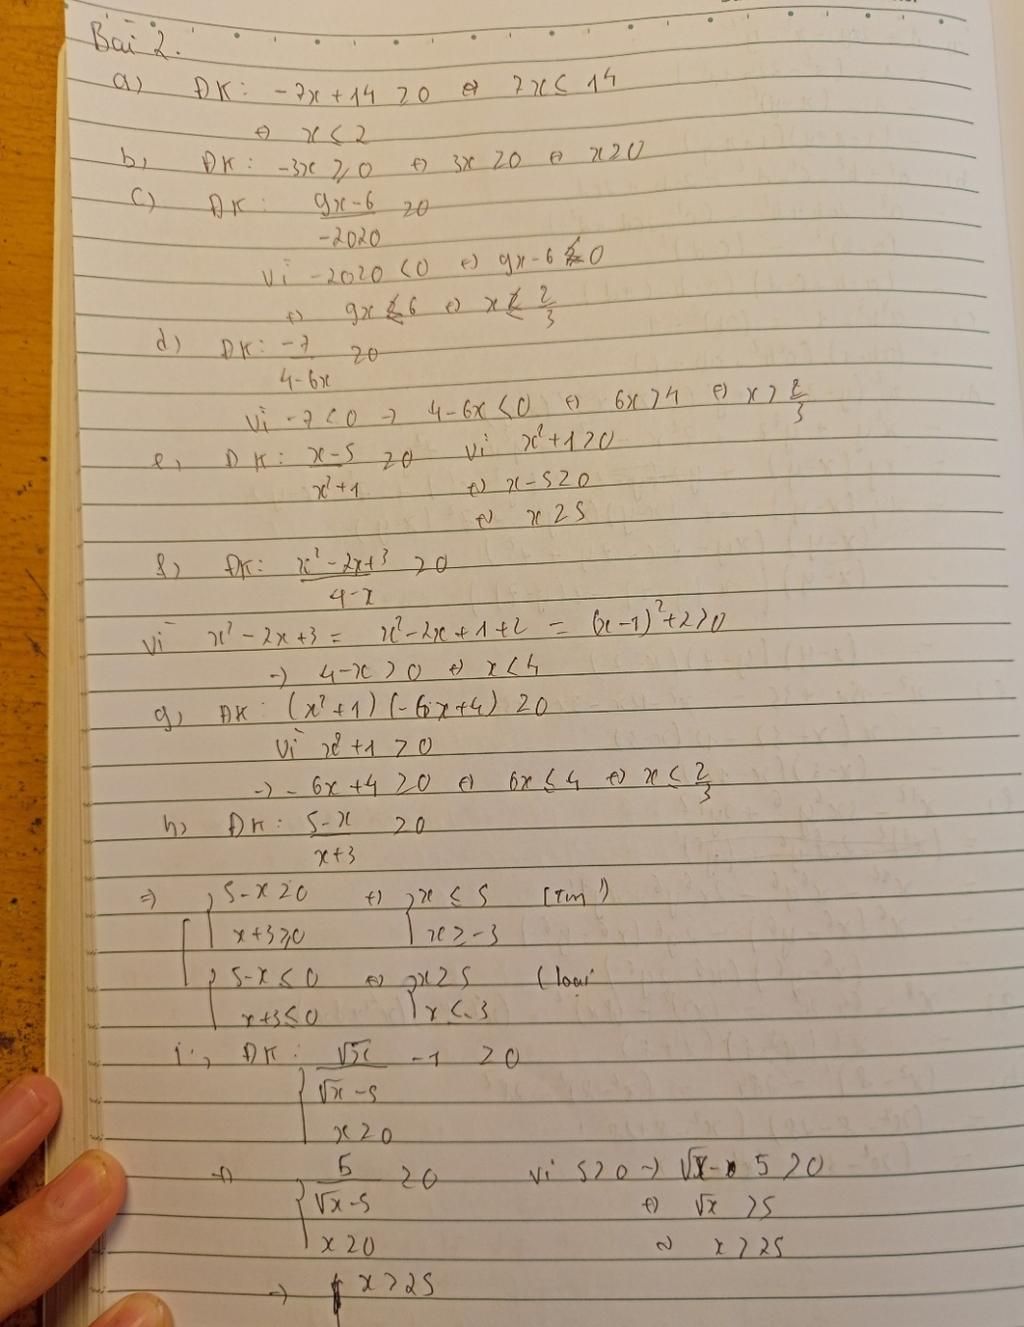 Bài 2.
a) ĐK: -7x + 14 ≥ 0 ⇔ 7x ≤ 14
⇔ x ≤ 2
b, ĐK: -3x ≥ 0 ⇔ 3x ≥ 0 ⇔ x ≥ 0
c) ĐK: (9x-6)/(-2020) ≥ 0
Vì -2020 < 0 ⇔ 9x-6 ≤ 0
⇔ 9x ≤ 6 ⇔ x ≤ 2/3
d) ĐK: (-7)/(4-6x) ≥ 0
Vì -7 < 0 → 4-6x < 0 ⇔ 6x > 4 ⇔ x > 2/3
e, ĐK: (x-5)/(x²+1) ≥ 0 Vì x²+1 > 0
⇔ x-5 ≥ 0
⇔ x ≥ 5
f) ĐK: (x²-2x+3)/(4-x) ≥ 0
Vì x²-2x+3 = x²-2x+1+2 = (x-1)²+2 > 0
→ 4-x > 0 ⇔ x < 4
g, ĐK: (x²+1)(-6x+4) ≥ 0
Vì x²+1 > 0
→ -6x+4 ≥ 0 ⇔ 6x ≤ 4 ⇔ x ≤ 2/3
h) ĐK: (5-x)/(x+3) ≥ 0
⇒ [ { 5-x ≥ 0 ⇔ { x ≤ 5 (Tm)
x+3 ≥ 0 x ≥ -3
{ 5-x ≤ 0 ⇔ { x ≥ 5 (loại
x+3 ≤ 0 x ≤ -3
i, ĐK: { √x/(√x-5) - 1 ≥ 0
x ≥ 0
⇔ { 5/(√x-5) ≥ 0 Vì 5 > 0 → √x - 5 > 0
⇔ √x > 5
x ≥ 0 ⇔ x > 25
→ x > 25